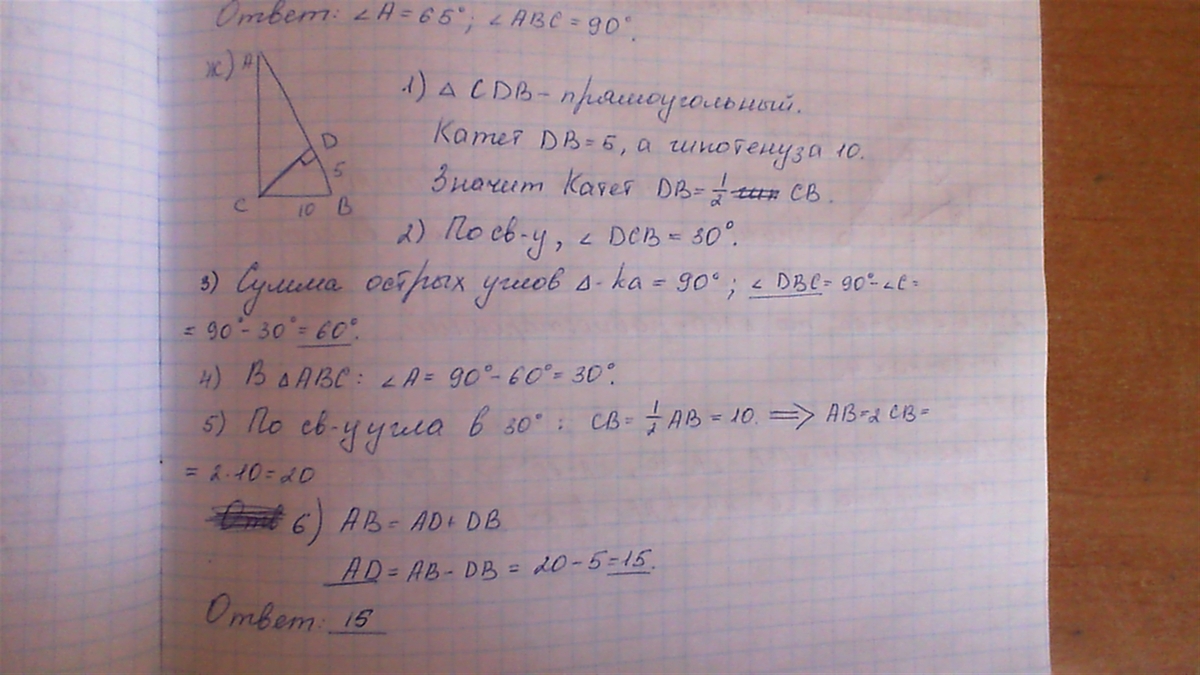 Ответ: ∠A = 65°; ∠ABC = 90°.
ж) A
D
5
C 10 B
1) △ CDB - прямоугольный.
Катет DB = 5, а гипотенуза 10.
Значит Катет DB = 1/2 CB.
2) По св-у, ∠ DCB = 30°.
3) Сумма острых углов △-ka = 90°; ∠ DBC = 90° - ∠C =
= 90° - 30° = 60°.
4) В △ABC: ∠A = 90° - 60° = 30°.
5) По св-у угла в 30°: CB = 1/2 AB = 10. ⟹ AB = 2 CB =
= 2·10 = 20
6) AB = AD + DB
AD = AB - DB = 20 - 5 = 15.
Ответ: 15